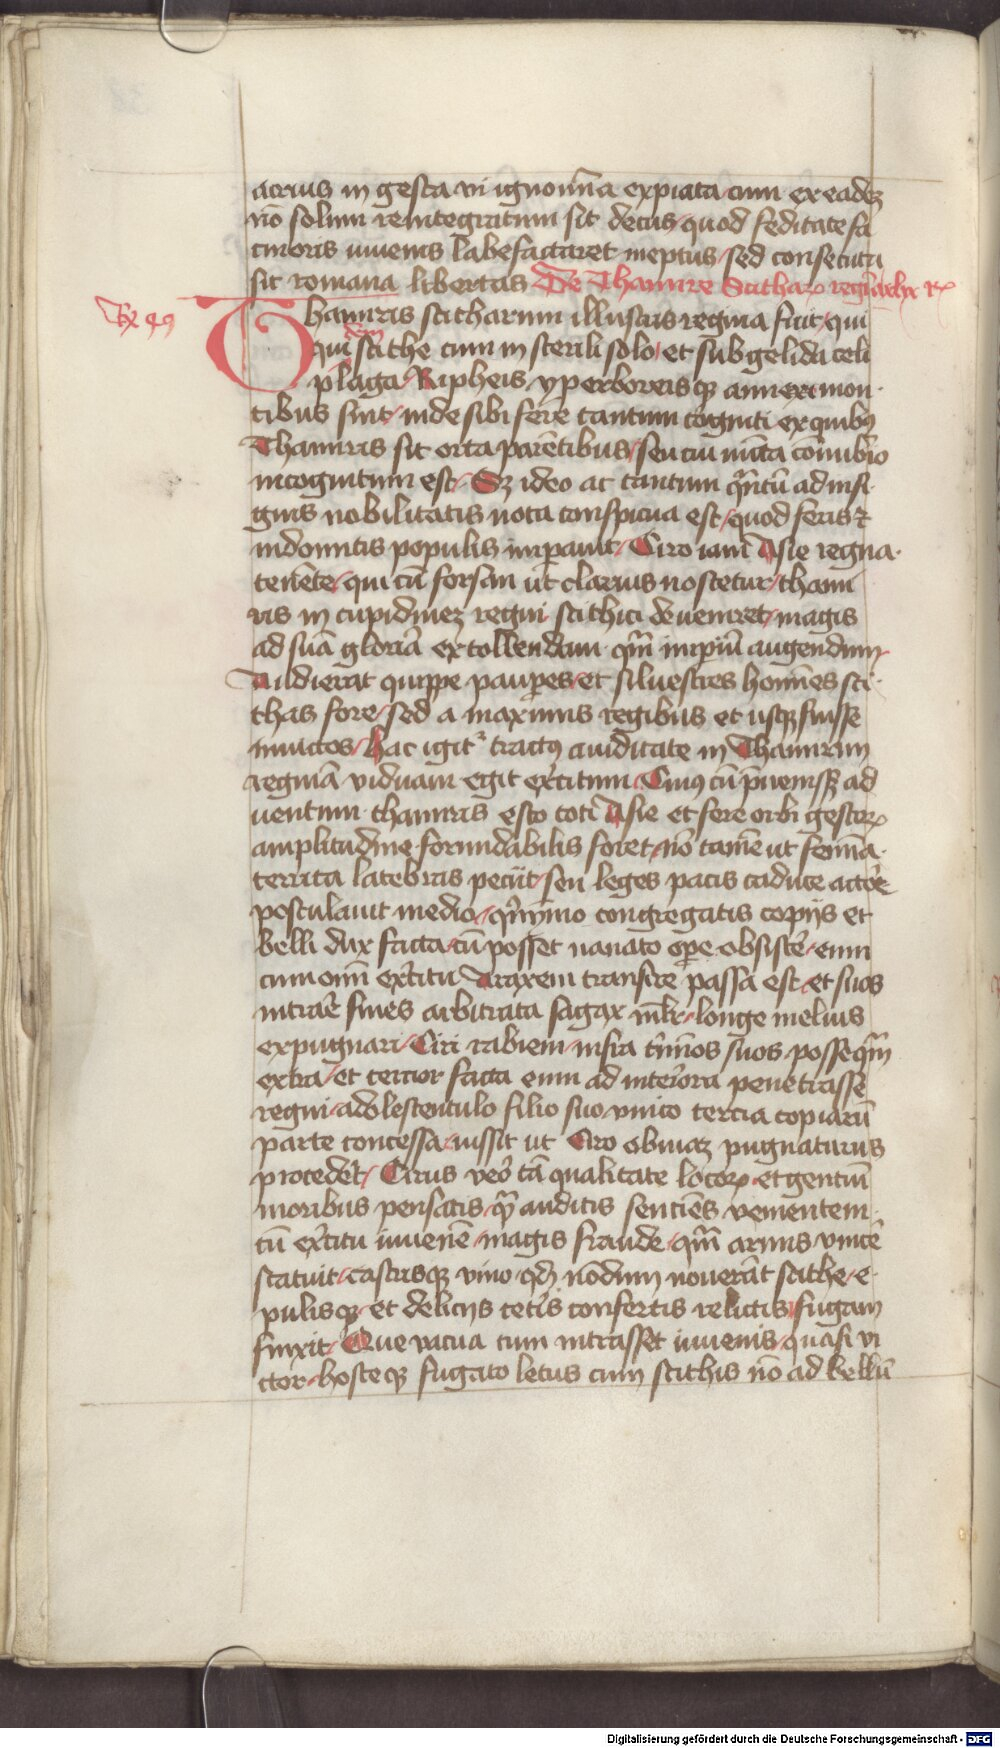 acrius in gesta vi ignomīa expiata cum ex eadeꝫ
nō solum reintegratum sit decus quod feditate fa
cinoris iuuenis labefactaret ineptus sed consecuta
sit romana libertas De Thamire Scithaꝝ regīa xlix Rᵃ
Thamiris scitharum illustris regina fuit qui
qui dem scithe cum in sterili solo et sub gelida celi
plaga Ripheis yperboreisqꝫ annexi mon
tibus sint inde sibi fere tantum cogniti ex quibꝰ
Thamiris sit orta parētibus seu cui iūcta cōnubio
incognitum est Sꝫ ideo ac tantum qūtū ad insi
gnis nobilitatis nota conspicua est quod feris ⁊
indomitis populis imperauit Ciro iam Asie regna
tenēte qui cū forsan ut clarius nosceretur thami
ris in cupidineꝫ regni scithici deueniret magis
ad suā gloriā extollendam qm̄ imperiū augendum
Audierat quippe pauperes et siluestres homīes sci
thas fore sed a maximis regibus et usqꝫ fuisse
inuictos hac igitᷣ tractꝰ auiditate in Thamirim
reginā viduam egit exʼcitum Cuiꝰ cū p̄nouissꝫ ad
uentum thamiris esto toti Asie et fere orbi gestoꝝ
amplitudine formidabilis foret nō tamē ut femīa
territa latebras peciit seu leges pacis caduce actōe
postulauit medio qūymo congregatis copijs et
belli dux facta cū posset nauato opere obsistēʼ eum
cum omī exʼcitu Araxem transire passa est et suos
intrare fines arbitrata sagax mlʼr longe melius
expugnari Ciri rabiem infra tʼmīos suos posse qm̄
extra et certior facta eum ad inteʼiora penetrasse
regni adolescentulo filio suo vnico tercia copiarū
parte concessa iussit ut Ciro obuiaꝫ pugnaturus
procederʼt Cirus veroʼ tā qualitate locoꝝ et gentiū
moribus pensatis qm̄ auditis sentiēs venientem
cū exʼcitu iuuenē magis fraude qm̄ armis vincēʼ
statuit castrisqꝫ vino qd nōdum nouerāt scithe e
pulisqꝫ et delicijs ceteʼis confertis relictis fugam
finxit Que vacua cum intrasset iuuenis quasi vi
ctor hosteqꝫ fugato letus cum scithis nō ad bellū
Digitalisierung gefördert durch die Deutsche Forschungsgemeinschaft - DFG